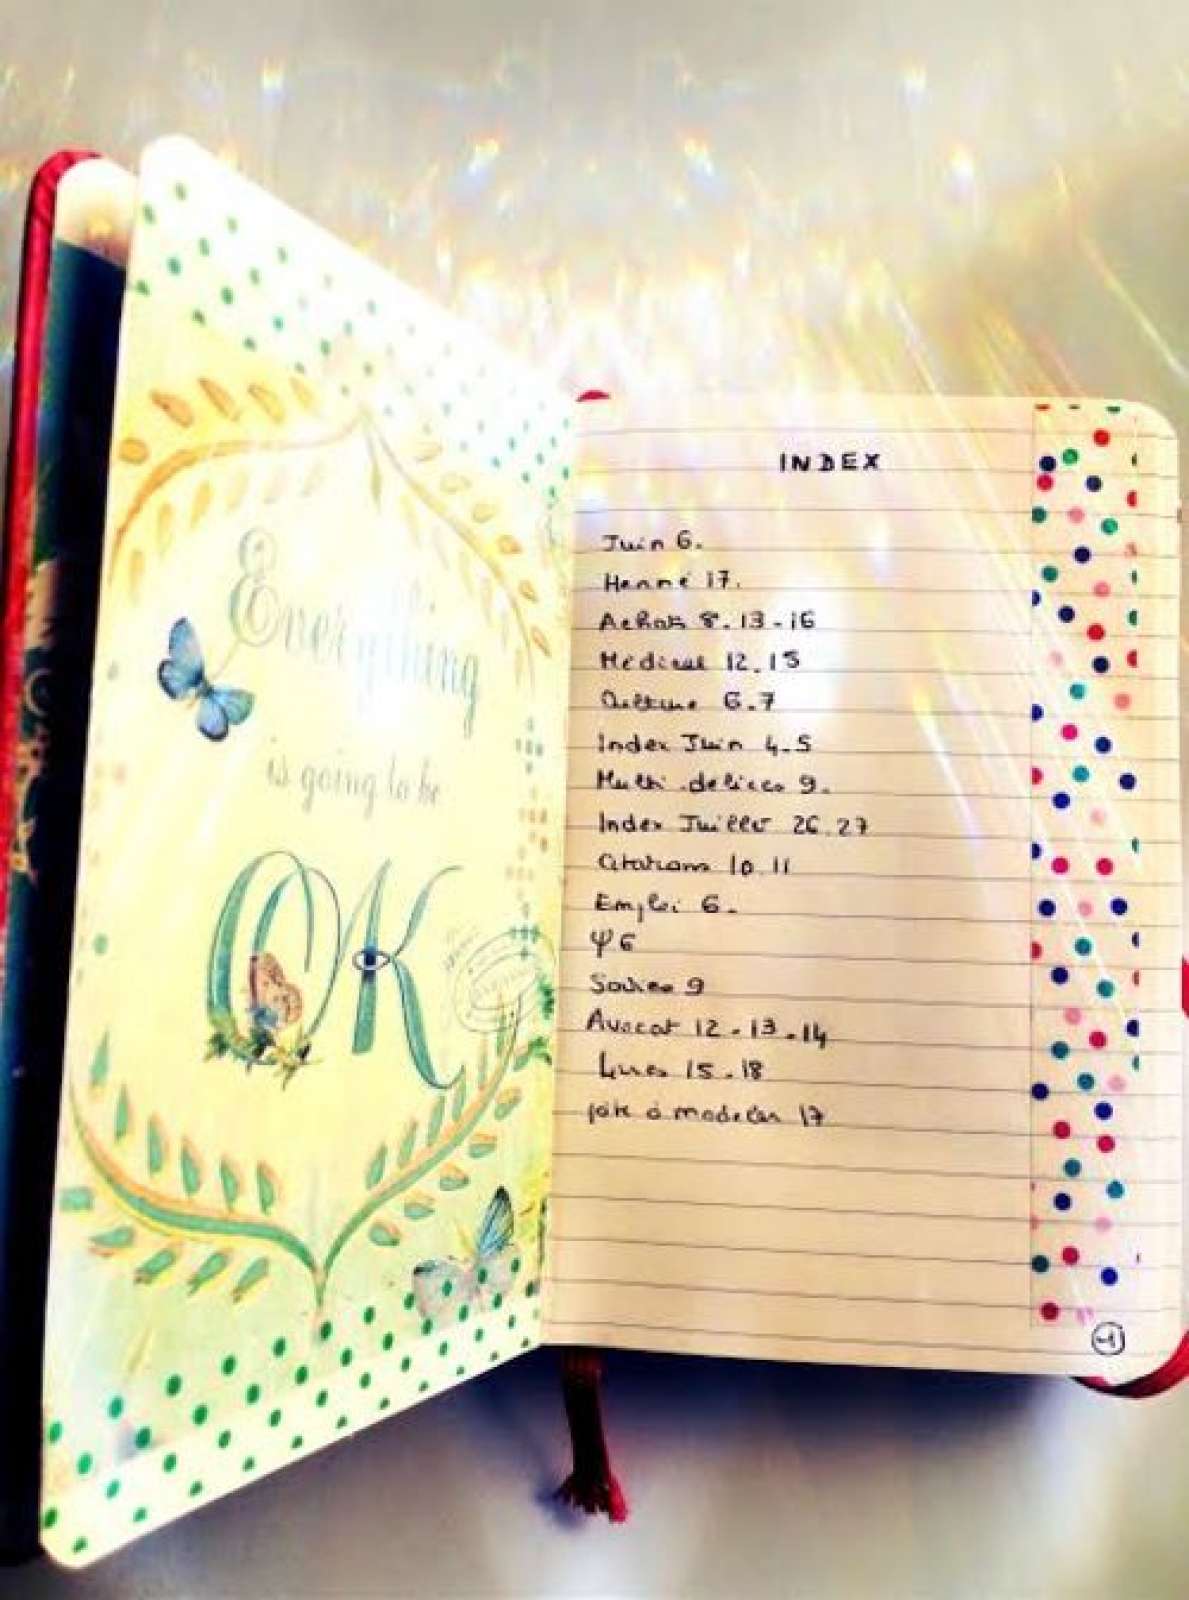 Everything
is going to be
OK
INDEX
Juin 6.
Henné 17.
Achats 8.13-16
Médical 12.15
Culture 6.7
Index Juin 4.5
Multi-délices 9.
Index Juillet 26.27
Citations 10.11
Emploi 6.
Ψ 6
Soirée 9
Avocat 12-13.14
Livres 15.18
pâte à modeler 17
1